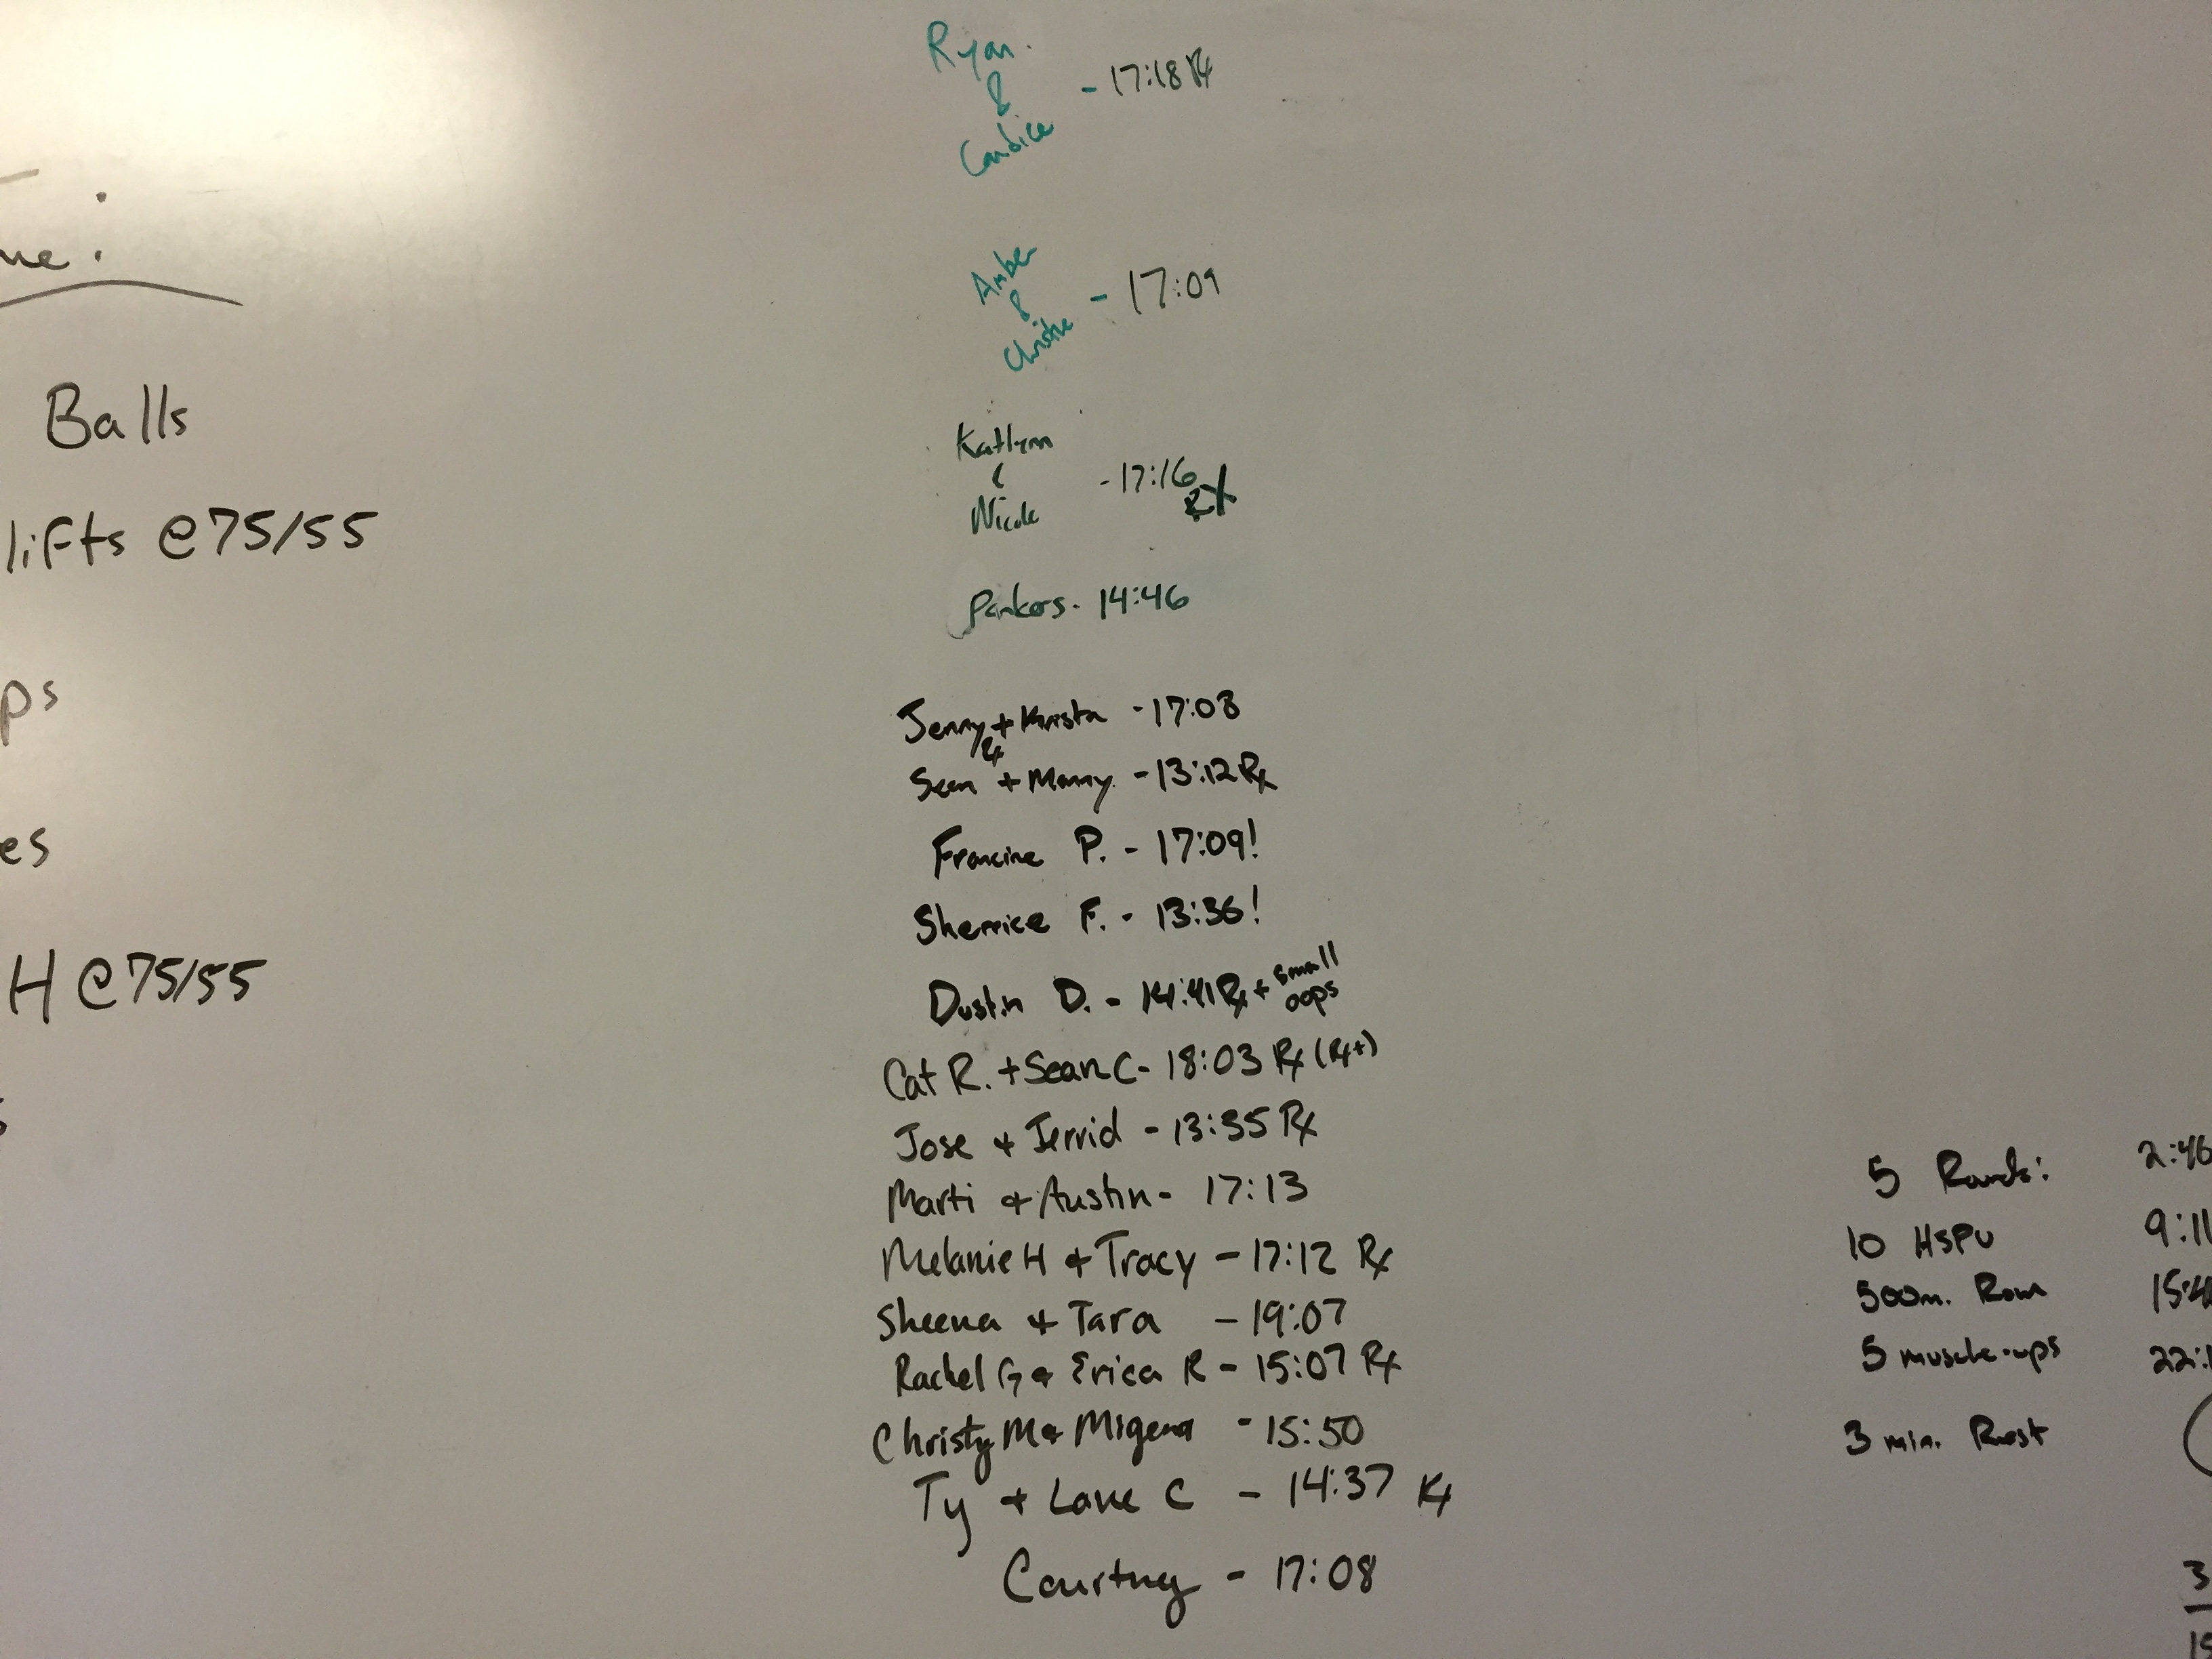 Ryan.
&
Candice
- 17:18 Rx
Amber
&
Christie
- 17:09
Katlynn
&
Nicole
- 17:16
RX
Parkers - 14:46
Jenny + Krista - 17:03
Rx
Sean + Manny - 13:12 Rx
Francine P. - 17:09!
Sherrice F. - 13:36!
Dustin D. - 14:41 Rx + small
oops
Cat R. + Sean C - 18:03 Rx (Rx+)
Jose + Jerrid - 13:35 Rx
Marti + Austin - 17:13
Melanie H + Tracy - 17:12 Rx
Sheena + Tara - 19:07
Rachel G + Erica R - 15:07 Rx
Christy M + Migena - 15:50
Ty + Lane C - 14:37 Rx
Courtney - 17:08
me:
Balls
lifts @ 75/55
ps
es
H @ 75/55
5 Rounds: 2:46
10 HSPU 9:11
500m. Row 15:4
5 muscle-ups 22:1
3 min. Rest
3